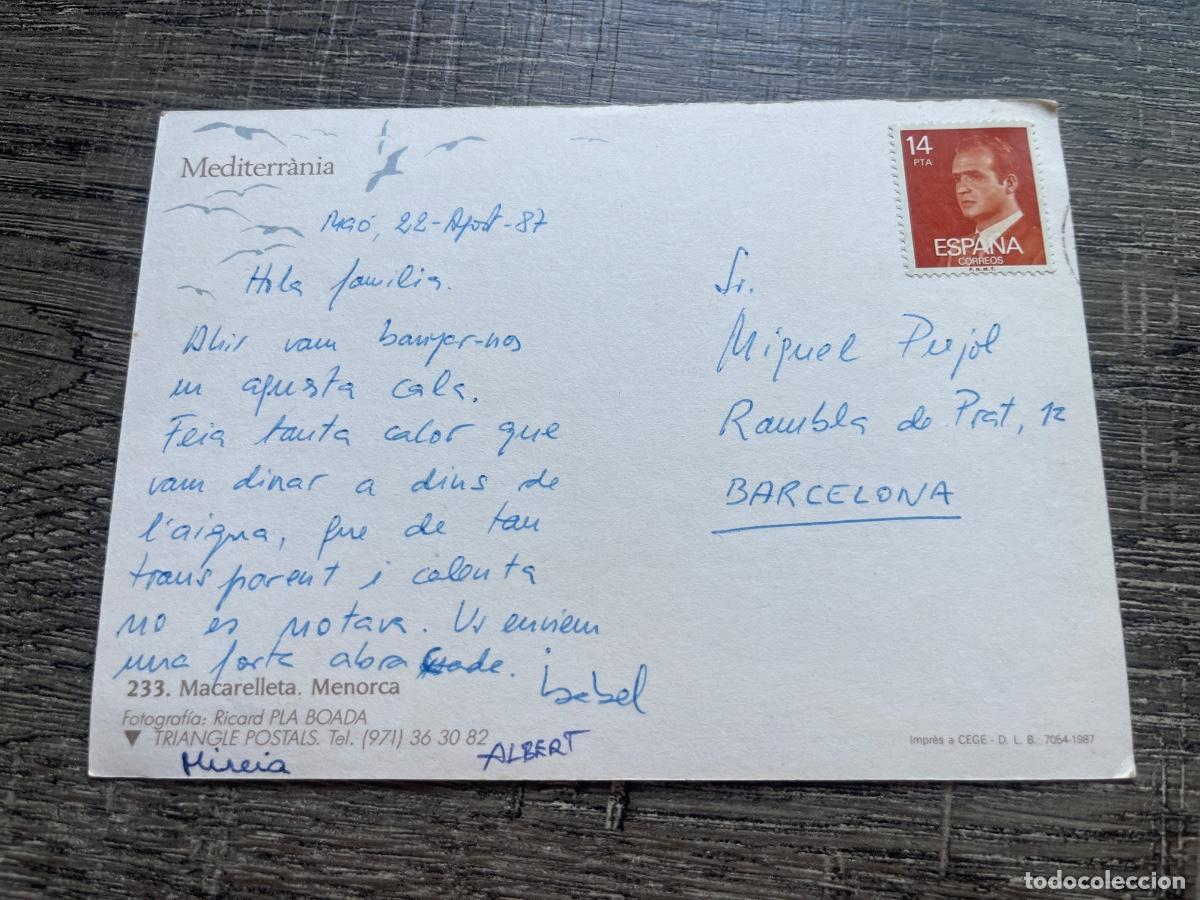 Mediterrània
Maó, 22-Agost-87
Hola família.
Ahir vam banyar-nos
en aquesta cala.
Feia tanta calor que
vam dinar a dins de
l'aigua, que de tan
transparent i calenta
no es notava. Us enviem
una forta abraçade.
Isabel
233. Macarelleta. Menorca
Fotografía: Ricard PLA BOADA
▼ TRIANGLE POSTALS. Tel. (971) 36 30 82
Mireia
ALBERT
14
PTA
ESPAÑA
CORREOS
F.N.M.T.
Sr.
Miguel Pujol
Rambla de Prat, 12
BARCELONA
Imprès a CEGE - D. L. B.: 7054-1987
todocoleccion